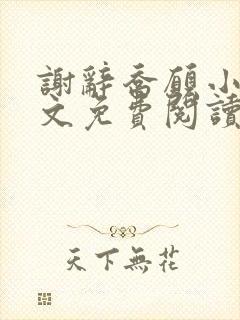 謝辭喬願小
文免費閱讀
天下無花